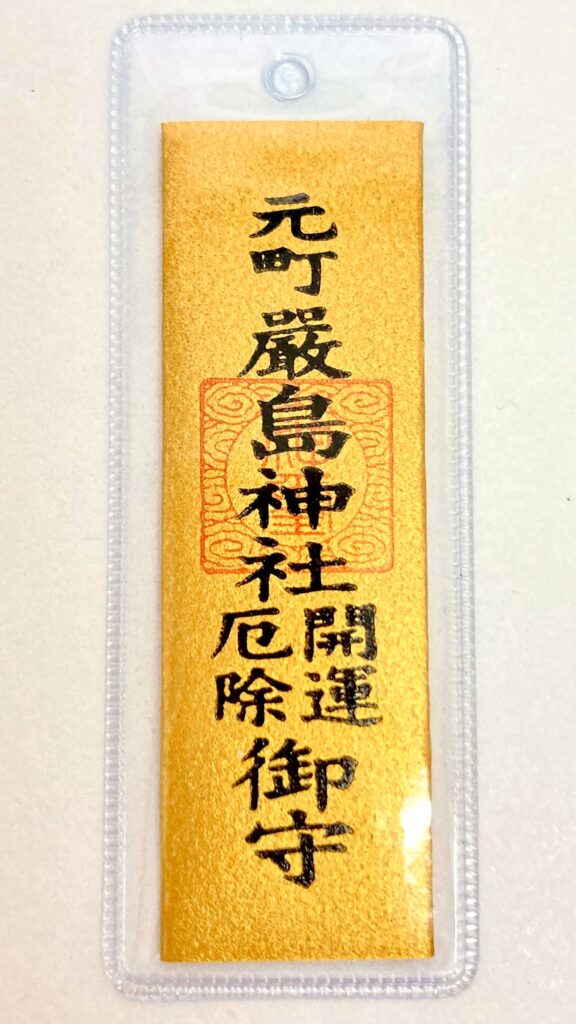 元町嚴島神社
開運
厄除
御守